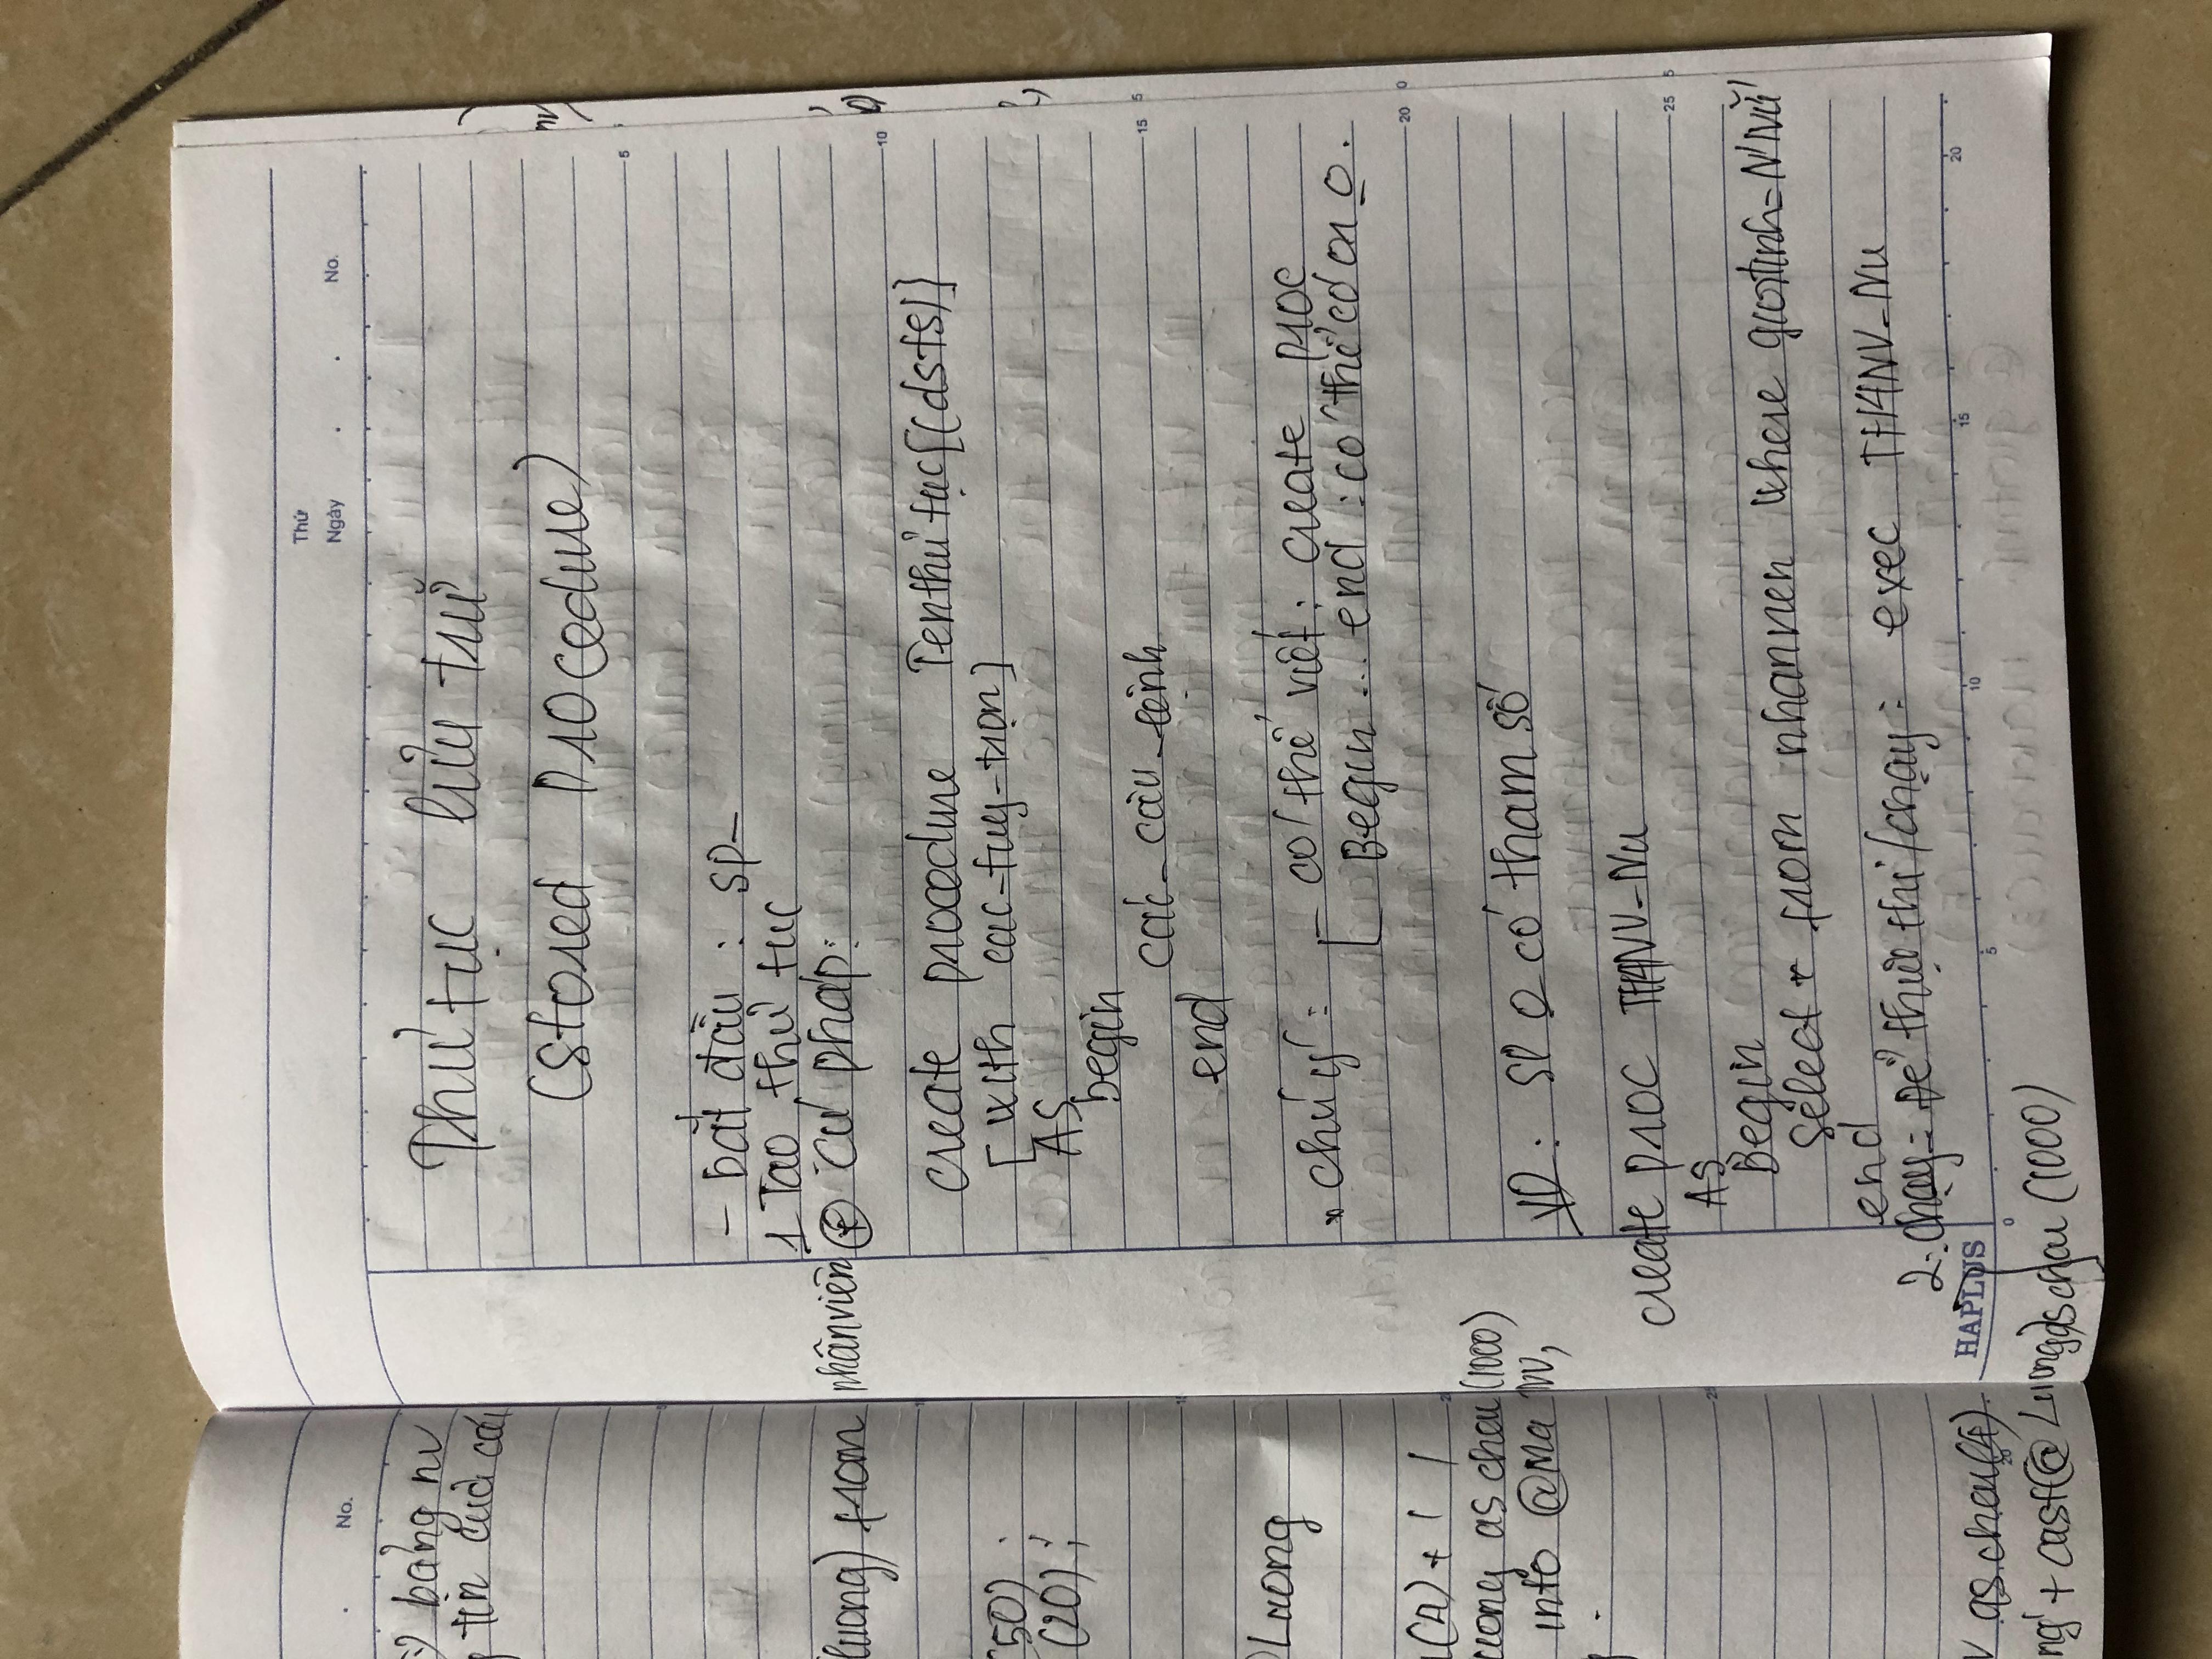 No.
bảng nv
tin của các
(luong) from nhânviên
(50) ;
(20) ;
Luong
(4) + ' '
luong as char (1000)
into @Ma NV,
as char(4)
ng' + cast(@ Luong as char (1000)
Thứ
Ngày . . No.
Thủ tục lưu trữ
(Stored procedure)
5
- bắt đầu : sp_
1 Tạo thủ tục
+ Cú pháp:
10
create procedure Tenthủ tục[(dsts)]
[with cac-tuy-trọn]
AS
begin
các_câu_lệnh
15
end
* chú ý : - có thể viết : create proc
Begin ... end : có thể có or 0.
20
VD : SP 0 có tham số
create proc THANV_Nu
25
AS
Begin
Select * from nhanvien where gioitinh = N'Nữ'
end
2. Chạy = Để thực thi/chạy : exec THANV_Nu
HAPLUS
0 5 10 15 20